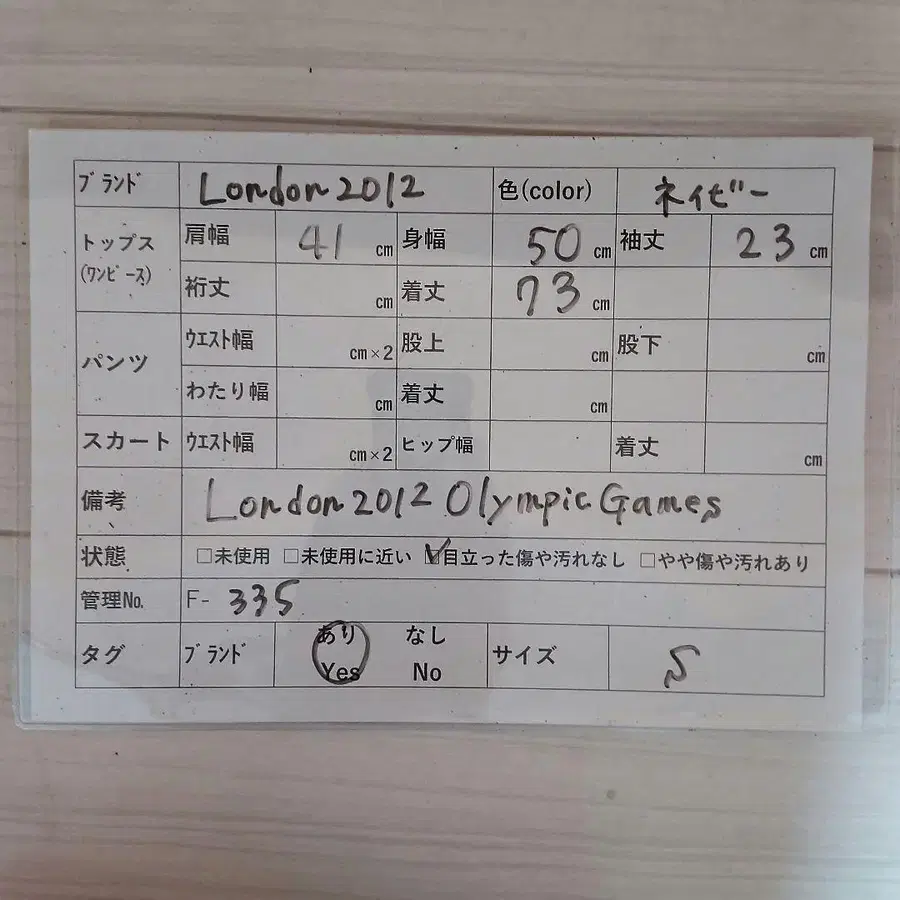 ブランド London2012 色(color) ネイビー
トップス(ワンピース) 肩幅 41 cm 身幅 50 cm 袖丈 23 cm
裄丈 cm 着丈 73 cm
パンツ ウエスト幅 cm×2 股上 cm 股下 cm
わたり幅 cm 着丈 cm
スカート ウエスト幅 cm×2 ヒップ幅 着丈 cm
備考 London2012 Olympic Games
状態 □未使用 □未使用に近い ☑目立った傷や汚れなし □やや傷や汚れあり
管理No. F- 335
タグ ブランド あり Yes なし No サイズ S